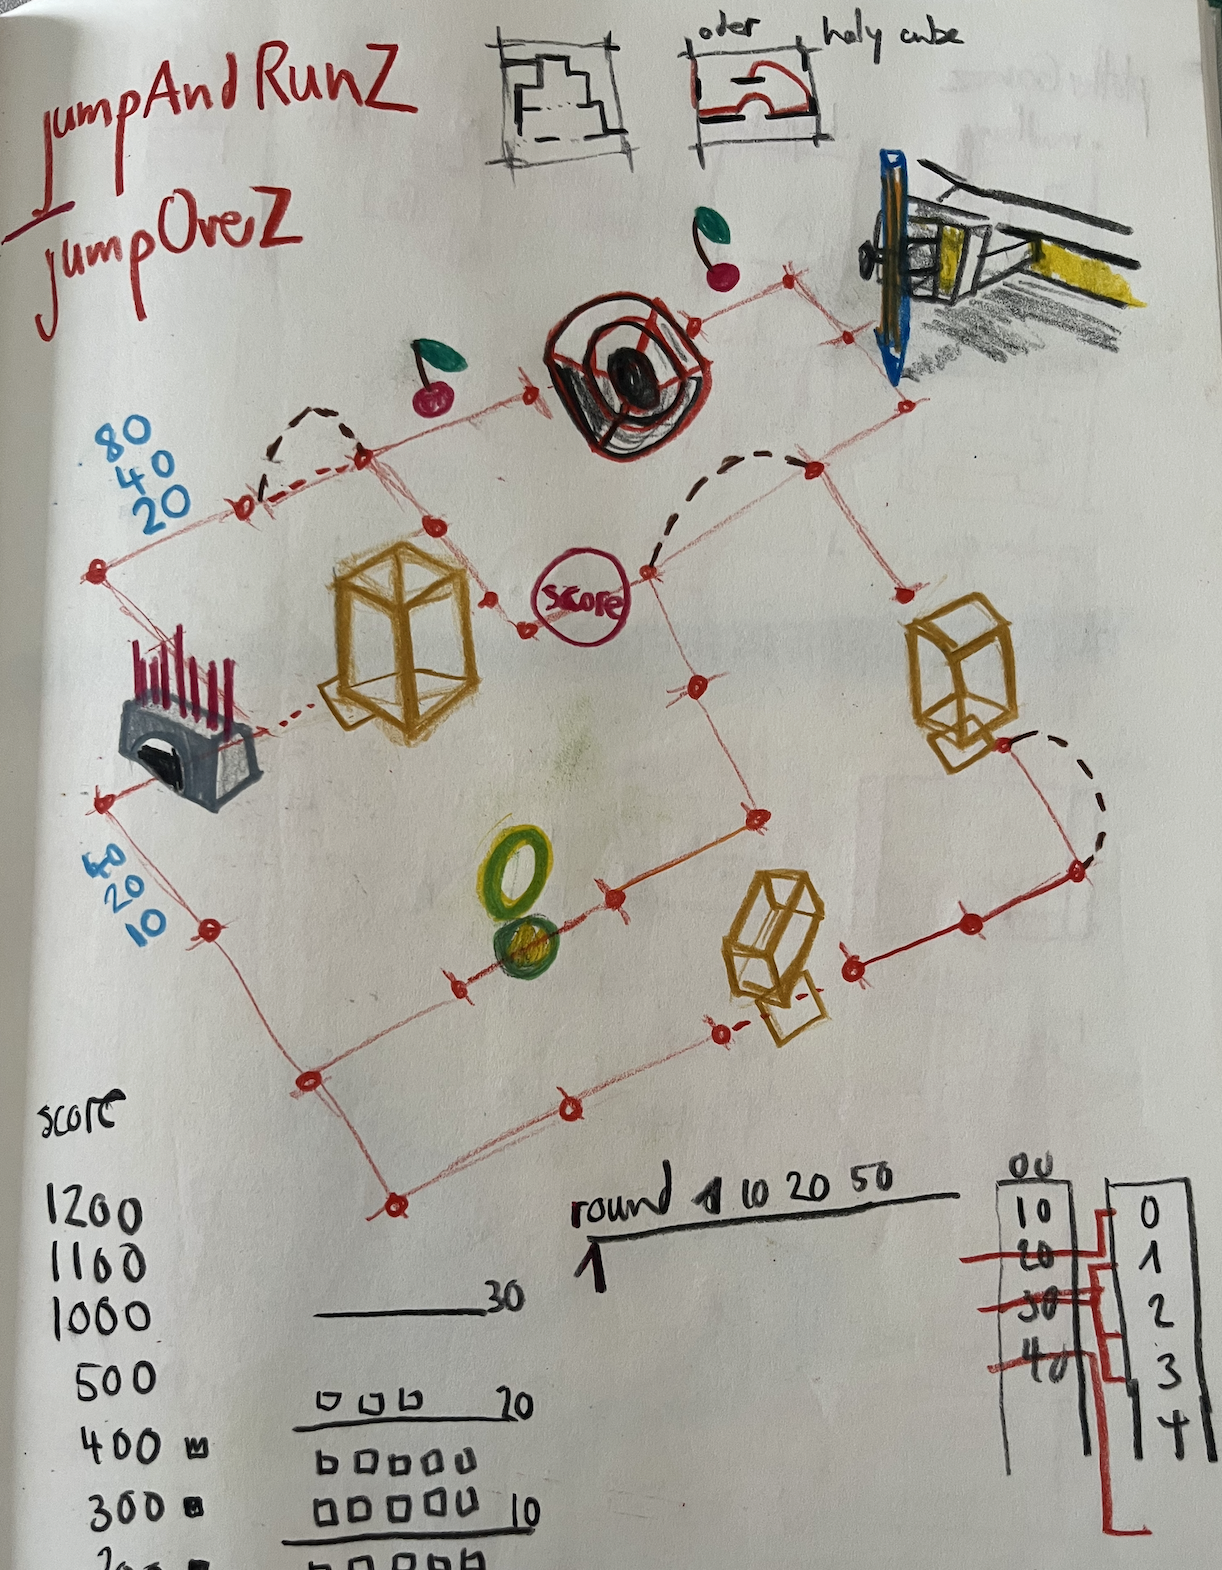 jumpAndRunZ
oder holy cube
jumpOverZ
80
40
20
score
40
20
10
score
1200
1100
1000
500
400
300
30
20
10
round 1 10 20 50
1
00
10
20
30
40
0
1
2
3
4